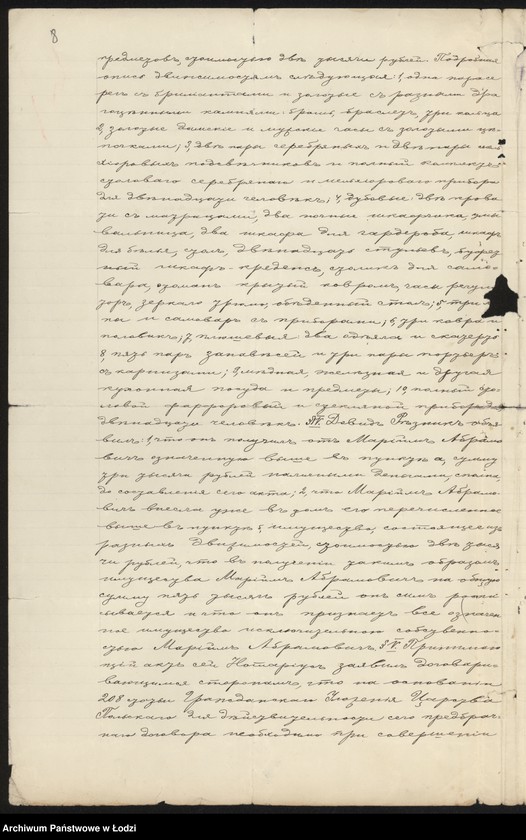 8
предметов, стоимостью две тысячи рублей. Подробная
опись движимостям следующая: 1, одна пара се-
рег с бриллиантами и золотые с разными дра
гоценными камнями: брошь, браслет, три кольца
2, золотые дамские и мужские часы с золотыми це-
почками; 3, две пары серебреных и две пары
подсвечников и полный комплект
столоваго серебреный и мельхиороваго прибора
для двенадцати человек; 4, дубовые: две крова
ти с матрацами, два ночные шкафчика, умы
вальница, два шкафа для гардероба, шкаф
для белья, стол, двенадцать стульев, буфет
ный шкаф-креденс, столик для само-
вара, крытый ковром, часы регуля
тор, зеркало трюмо, обеденный стол; 5,
пы и самовар с приборами; 6, три ковра и
половик; 7, плюшевые два одеяла и скатерть
8, пять пар занавесей и три пары портьер
с карнизами; 9, медная, железная и другая
кухонная посуда и предметы; 10, полный сто
ловой фарфоровый и стеклянный прибор на
двенадцати человек. § IV. Давид Резник объя
вил: 1, что он получил от Мариям Абрамо
вич означенную выше в пункте а, сумму
три тысячи рублей наличными деньгами,
до составления сего акта; 2, что Мариям Абрамо-
вич внесла уже в дом его перечисленное
выше в пункте б, имущество, состоящее из
разных движимостей, стоимостью две тыся
чи рублей, что в получении таким образом
имущества Мариям Абрамович на общую
сумму пять тысяч рублей он сим распи
сывается и что он признает все означен
ное имущество исключительно собственно-
стью Мариям Абрамович. § V. Принимаю
щий акт сей Нотариус заявил договари
вающимся сторонам, что на основании
208 статьи Гражданскаго Уложения Царства
Польскаго для действительности сего предбрач-
наго договора необходимо при совершении
Archiwum Państwowe w Łodzi